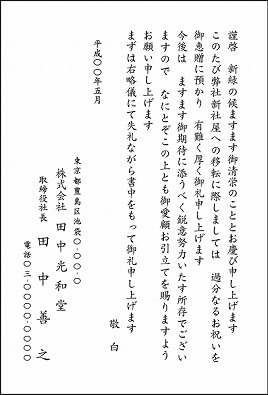 謹啓 新緑の候ますます御清栄のこととお慶び申し上げます
このたび弊社新社屋への移転に際しましては 過分なるお祝いを
御恵贈に預かり 有難く厚く御礼申し上げます
今後は ますます御期待に添うべく鋭意努力いたす所存でござい
ますので なにとぞこの上とも御愛顧お引立てを賜りますよう
お願い申し上げます
まずは右略儀にて失礼ながら書中をもって御礼申し上げます
敬白
平成〇〇年五月
東京都豊島区池袋〇-〇〇-〇
株式会社 田中光和堂
取締役社長 田中善之
電話〇三-〇〇〇〇-〇〇〇〇